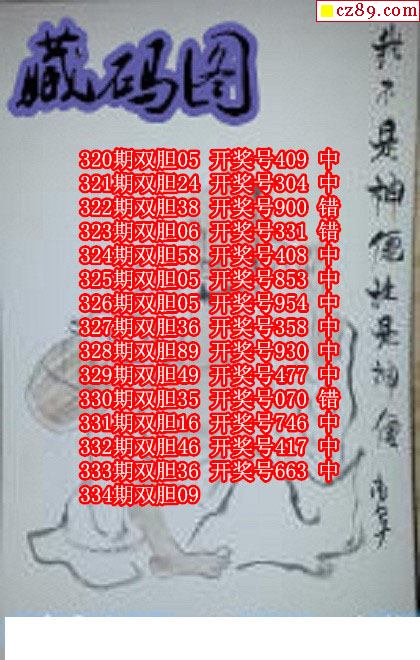 cz89.com
藏码图
我不是神但又是神仙
320期双胆05 开奖号409 中
321期双胆24 开奖号304 中
322期双胆38 开奖号900 错
323期双胆06 开奖号331 错
324期双胆58 开奖号408 中
325期双胆05 开奖号853 中
326期双胆05 开奖号954 中
327期双胆36 开奖号358 中
328期双胆89 开奖号930 中
329期双胆49 开奖号477 中
330期双胆35 开奖号070 错
331期双胆16 开奖号746 中
332期双胆46 开奖号417 中
333期双胆36 开奖号663 中
334期双胆09